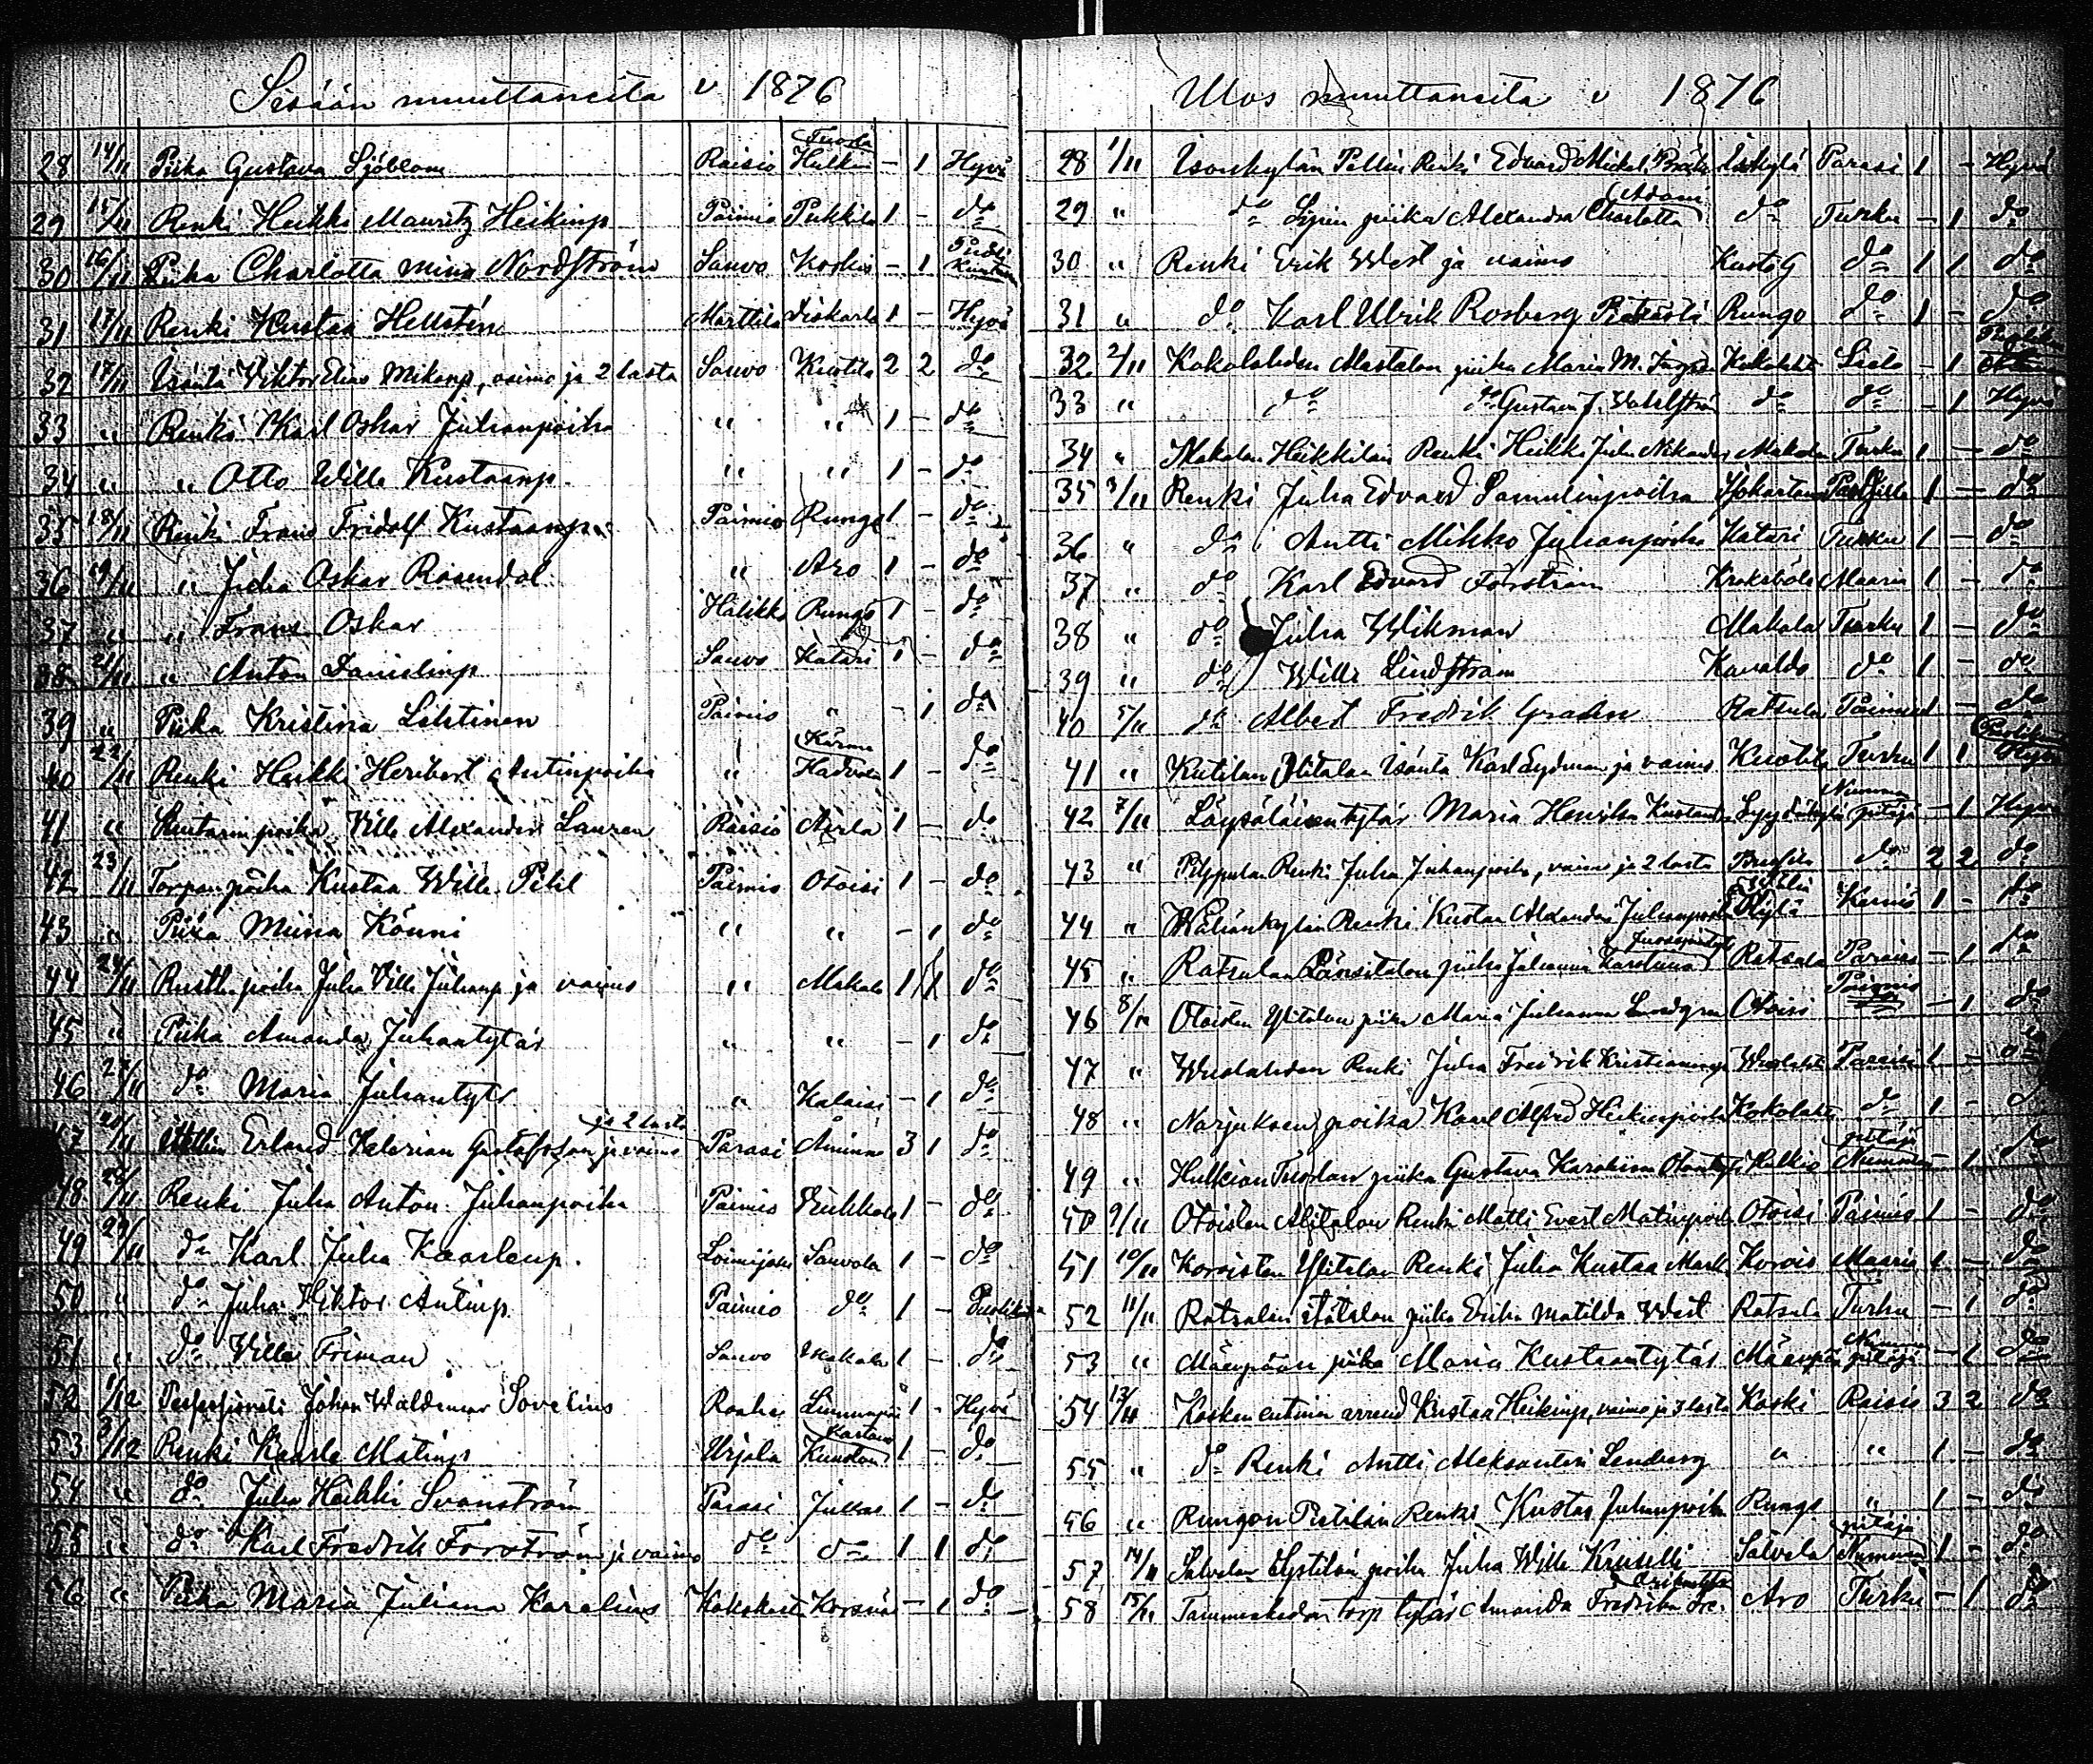 Sisään muuttaneita v 1876
28 14/11 Piika Gustava Sjöblom Raisio Tuorla Hulkio – 1 Hyvä
29 15/11 Renki Heikki Mauritz Heikinp Paimio Pukkila 1 – do
30 16/11 Piika Charlotta Mina Nordström Sauvo Koskis – 1
31 17/11 Renki Kustaa Hellstén Marttila Viskarla 1 – Hyvä
32 17/11 Isäntä Viktor Elias Mikenp, vaimo ja 2 lasta Sauvo Kuotila 2 2 do
33 " Renki Karl Oskar Juhanpoika " " 1 – do
34 " " Otto Wille Kustaanp. " " 1 – do
35 18/11 Renki Frans Fridolf Kustaanp. Paimio Rungo 1 – do
36 19/11 " Juha Oskar Rosendal " Aro 1 – do
37 " " Frans Oskar Halikko Rungo 1 – do
38 21/11 " Anton Danielinp Sauvo Katari 1 – do
39 " Piika Kristina Lehtinen Paimio " – 1 do
40 22/11 Renki Heikki Heribert Antinpoika " Hadvala 1 – do
41 " poika Ville Alexander Lauren Raisio Airla 1 – do
42 23/11 Torpan poika Kustaa Wille Petil Paimio Otoisi 1 – do
43 " Piika Miina Könni " " – 1 do
44 24/11 Rusth. poika Juha Ville Juhanp ja vaimo " Makala 1 1 do
45 " Piika Amanda Juhantytär " " – 1 do
46 27/11 do Maria Juhantytr " Kalaisi – 1 do
47 28/11 Erland Valerian Gustafsson ja vaimo ja 2 lasta Parasi Åminne 3 1 do
48 28/11 Renki Juha Anton Juhanpoika Paimio 1 – do
49 29/11 do Karl Juha Kaarlenp. Loimijoki Sauvola 1 – do
50 " do Juha Viktor Antinp. Paimio do 1 – Puolik
51 " do Ville Friman Sauvo Makala 1 – do
52 1/12 Johan Waldemar Sovelius Raahe 1 – Hyvä
53 2/12 Renki Kaarle Matinp Urjala Kartano 1 – do
54 " do Juha Heikki Svanström Parasi Jullas 1 – do
55 " do Karl Fredrik Forström ja vaimo do do 1 1 do
56 " Piika Maria Juliana Karelius Korsnä – 1 do
Ulos muuttaneita v 1876
28 1/11 Isonkylän Pellin Renki Edvard Mickel Isokylä Parasi 1 – Hyvä
29 " do piika Alexandra Charlotta do Turku – 1 do
30 " Renki Erik West ja vaimo Kustö G do 1 1 do
31 " do Karl Ulrik Rosberg Rungo do 1 – do
32 2/11 Kokolahden Mastalan piika Maria M. Kokolahti Lieto – 1
33 " do do Gustava J. Wahlström do do – 1 Hyvä
34 " Makalan Heikkilän Renki Heikki Juha Nikander Makala Turku 1 – do
35 3/11 Renki Juha Edvard Samulinpoika 1 – do
36 " do Antti Mikko Juhanpoika Katari Turku 1 – do
37 " do Karl Edvard Forström Maaria 1 – do
38 " do Juha Wikman Makala Turku 1 – do
39 " do Wille Lindström do 1 – do
40 5/11 do Albert Fredrik Grahn Ratsula Paimio 1 – do
41 " Kuotilan Ylitalon Isäntä Karl ja vaimo Kuotila Turku 1 1 Hyvä
42 7/11 Löysäläisentytär Maria Henrika Numme pitäjä – 1 Hyvä
43 " Renki Juha Juhanpoika, vaimo ja 2 lasta do 2 2 do
44 " Renki Kustaa Alexander Juhanpoika Karuis 1 – do
45 " Ratsulan piika Johanna Karoliina Ratsula Parais – 1 do
46 8/11 Otoisten Ylitalon piika Maria Juhanna Lundgren Otoisi Paimio – 1 do
47 " Renki Juha Fredrik Kristianinp Paraisi 1 – do
48 " poika Karl Alfred Heikinpoika Kokolahti do 1 –
49 " Hulkion Tuorlan piika Gustava Karoliina Hulkio Nummen pitäjä – 1 do
50 9/11 Otoisten Alitalon Renki Matti Evert Matinpoik Otoisi Paimio 1 – do
51 10/11 Koroisten Ylitalon Renki Juha Kustaa Korois Maaria 1 – do
52 11/11 Ratsulan piika Erika Matilda West Ratsula Turku – 1 do
53 " Mäenpään piika Maria Kustaantytär Mäenpää pitäjä – 1 do
54 13/11 Kosken entinen arrend Kustaa Heikinp, vaimo ja 3 lasta Koski Raisio 3 2 do
55 " do Renki Antti Aleksanteri Lindberg " " 1 – do
56 " Rungon Pietilän Renki Kustaa Juhanpoika Rungo " 1 – do
57 14/11 Salvelan poika Juha Wille Kruselli Salvela Nummen pitäjä 1 – do
58 15/11 torp tytär Amanda Fredrika Aro Turku – 1 do